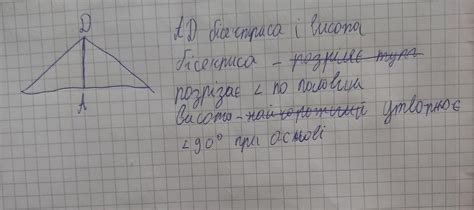 D
A
AD бісектриса і висота
бісектриса - розріляє тупа
розрізає ∠ по половин
Висота - найкоротший утворює
∠90° при основі